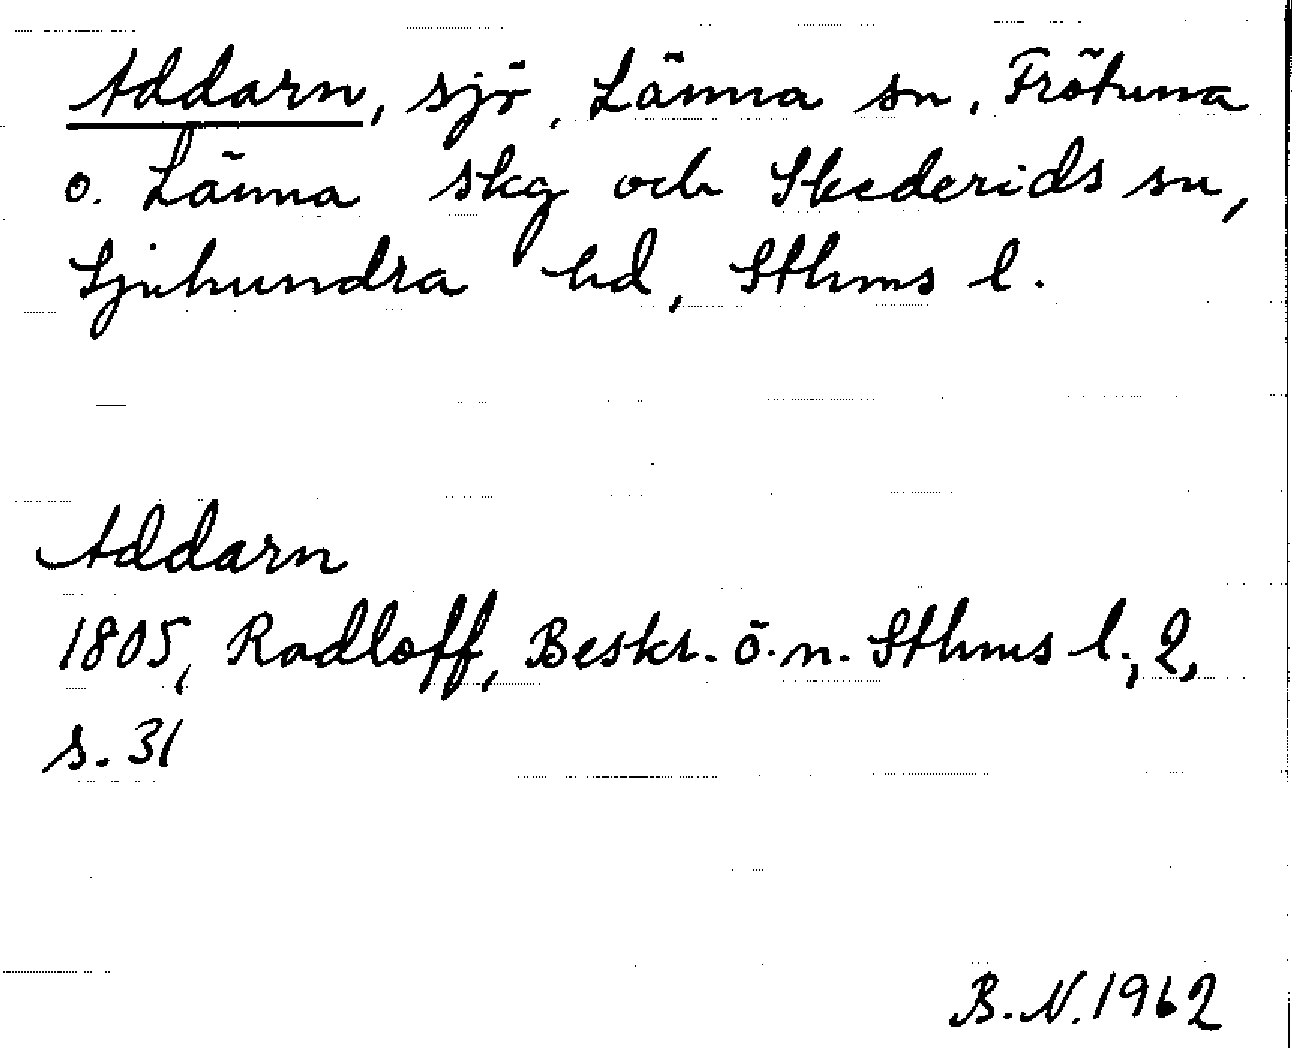 Addarn, sjö, Länna sn, Frötuna
o. Länna skg och Skederids sn,
Sjuhundra hd, Sthms l.
Addarn
1805, Radloff, Beskr. ö. n. Sthms l., 2,
s. 31
B. N. 1962